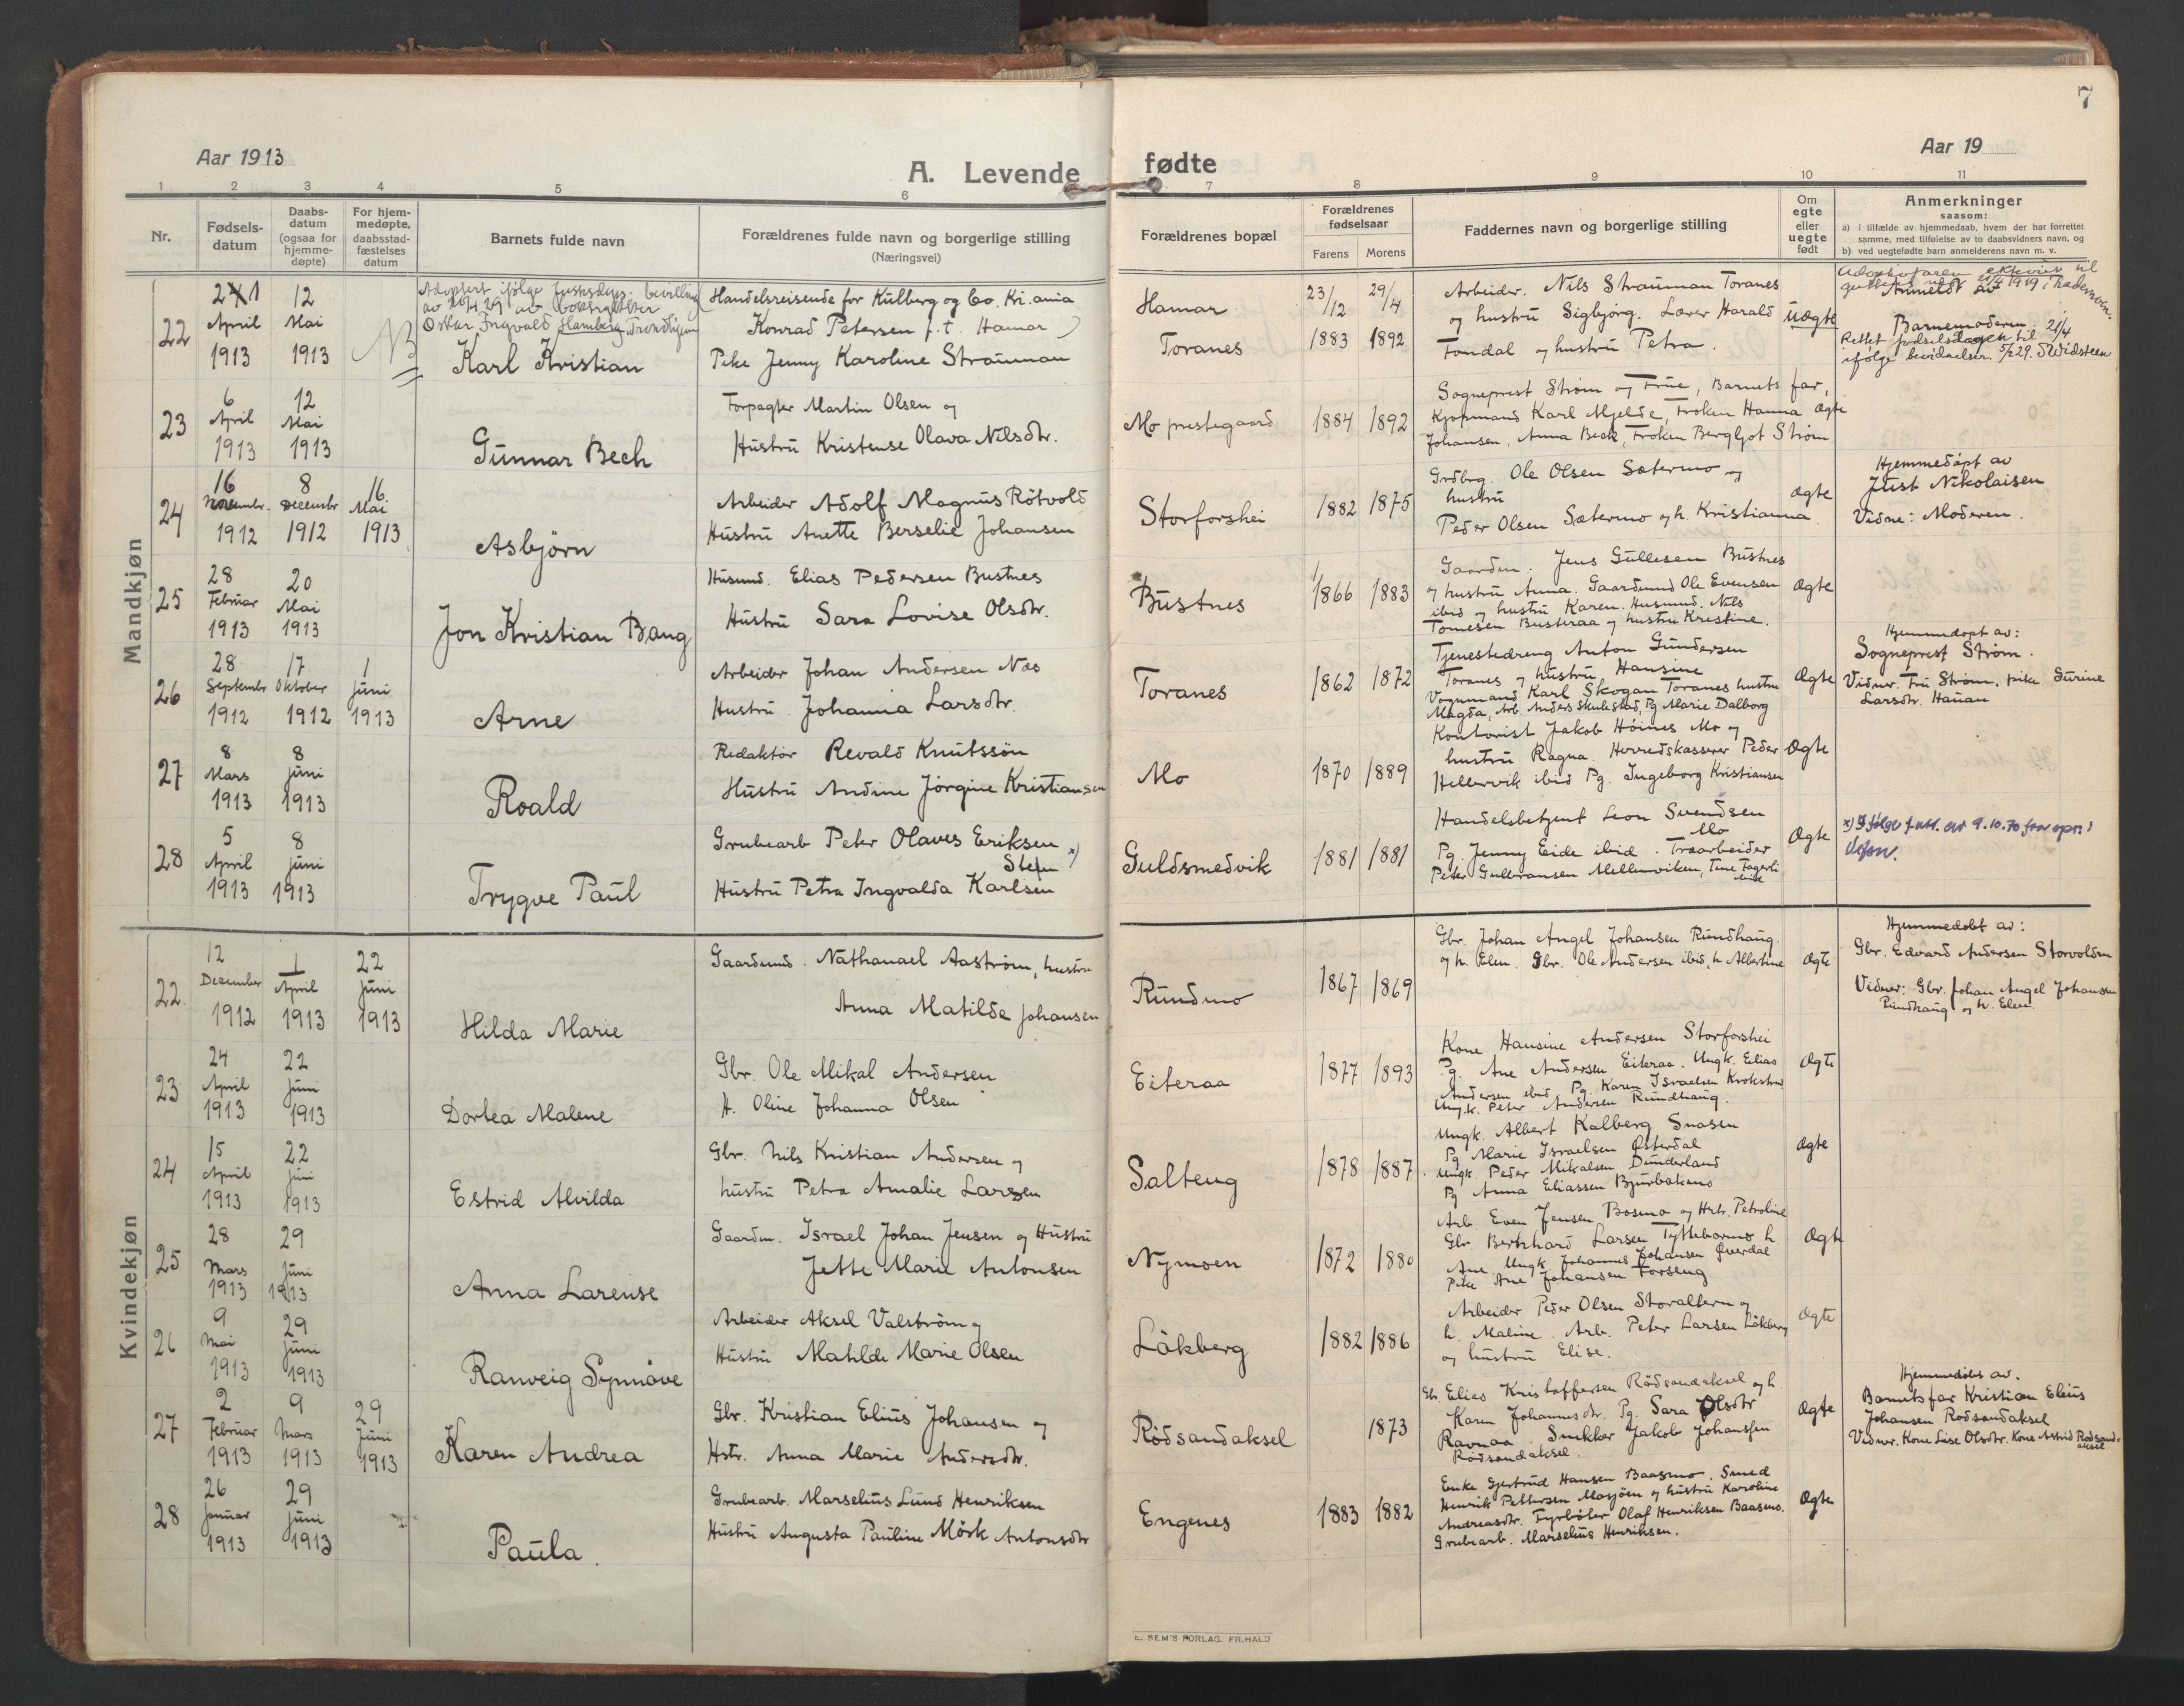 7
Aar 1913
A. Levende
fødte
Aar 19
1 2 3 4 5 6 7 8 9 10 11
Nr.
Fødsels-
datum
Daabs-
datum
(ogsaa for
hjemme-
døpte)
For hjem-
medøpte,
daabsstad-
fæstelses
datum
Barnets fulde navn
Forældrenes fulde navn og borgerlige stilling
(Næringsvei)
Forældrenes bopæl
Forældrenes
fødselsaar
Farens Morens
Faddernes navn og borgerlige stilling
Om
egte
eller
uegte
født
Anmerkninger
saasom:
a) i tilfælde av hjemmedaab, hvem der har forrettet
samme, med tilføielse av to daabsvidners navn, og
b) ved uegtefødte barn anmelderens navn m. v.
Mandkjøn
22
April
1913
12
Mai
1913
NB
Adoptert ifølge bevilling
av 26/4 29 av boktrykker
Oskar Ingvald Hamberg, Trondhjem
Karl Kristian
Handelsreisende for Kulberg og Co. Kr.ania
Konrad Petersen p.t. Hamar
Pike Jenny Karoline Strauman
Hamar
Toranes
23/12
1883
29/4
1892
Arbeider. Nils Strauman Toranes
og hustru Sigbjørg. Lærer Harald
Fondal og hustru Petra.
uægte
Anmeldt av
Barnemoderen.
Rettet fødselsdagen til 21/4
ifølge bevidnelser. 5/7 29. S Widsteen
23
6
April
1913
12
Mai
1913
Gunnar Bech
Forpagter Martin Olsen og
Hustru Kristense Olava Nilsdtr.
Mo prestegaard
1884
1892
Sogneprest Strøm og Frue, Barnets far,
Kjøpmand Karl Mjelde, Frøken Hanna
Johansen, Anna Beck, Frøken Bergljot Strøm
Ægte
24
16
Novembr.
1912
8
Decembr
1912
16
Mai
1913
Asbjørn
Arbeider Adolf Magnus Røtvold
Hustru Anette Berselie Johansen
Storforshei
1882
1875
Grdbrg. Ole Olsen Sætermo og
hustru
Peder Olsen Sætermo og h. Kristianna.
Ægte
Hjemmedøpt av
Just Nikolaisen
Vidne: Moderen.
25
28
Februar
1913
20
Mai
1913
Jon Kristian Bang
Husmd. Elias Pedersen Bustnes
Hustru Sara Lovise Olsdtr.
Bustnes
1866
1883
Gaardm. Jens Gullesen Bustnes
og hustru Anna. Gaardmd Ole Evensen
ibid og hustru Karen. Husmd. Nils
Tomesen Busteraa og hustru Kristine.
Ægte
26
28
Septembr
1912
17
Oktober
1912
1
Juni
1913
Arne
Arbeider Johan Andersen Næs
Hustru Johanna Larsdtr.
Toranes
1862
1872
Tjenestedreng Anton Gundersen
Toranes og hustru Hansine
Vognmand Karl Skogan Toranes hustru
Magda, Arb. Anders Skulestad, Pg Marie Dalborg
Ægte
Hjemmedøpt av:
Sogneprest Strøm.
Vidner. Fru Strøm, pike Gurine
Larsdtr. Hauan
27
8
Mars
1913
8
Juni
1913
Roald
Redaktør Revald Knutssøn
Hustru Andine Jørgine Kristiansen
Mo
1870
1889
Kontorist Jakob Høines Mo og
hustru Ragna. Herredskasserer Peder
Hellervik ibid Pg. Ingeborg Kristiansen
Ægte
28
5
April
1913
8
Juni
1913
Trygve Paul
Grubearb Peter Olaves Eriksen
Stefn x)
Hustru Petra Ingvalda Karlsen
Guldsmedvik
1881
1881
Handelsbetjent Leon Svendsen
Mo
Pg. Jenny Eide ibid. Træarbeider
Peter Gulbransen Mellemviken, Tine Fagerli
ibid
Ægte
x) Ifølge f.att. av 9.10.70 før opr.
Kvindekjøn
22
12
December
1912
1
April
1913
22
Juni
1913
Hilda Marie
Gaardmd. Nathanael Aastrøm, hustru
Anna Matilde Johansen
Rundmo
1867
1869
Gbr. Johan Angel Johansen Rundhaug.
og h. Elen. Gbr. Ole Andersen ibid, h. Albertine
Ægte
Hjemmedøbt av:
Gbr. Edvard Andersen Storvolden
Vidner: Gbr. Johan Angel Johansen
Rundhaug og h. Elen.
23
24
April
1913
22
Juni
1913
Dortea Malene
Gbr. Ole Mikal Andersen
H. Oline Johanna Olsen
Eiteraa
1877
1893
Kone Hansine Andersen Storforshei
Pg. Ane Andersen Eiteraa. Ungk. Elias
Andersen ibid Pg. Karen Israelsen Krokstrand
Ungk. Peter Andersen Rundhaug.
Ægte
24
15
April
1913
22
Juni
1913
Estrid Alvilda
Gbr. Nils Kristian Andersen og
hustru Petra Amalie Larsen
Salteng
1878
1887
Ungk. Albert Kalberg Snasen
Pg Marie Israelsen Østerdal
Ungk. Peder Mikalsen Dunderland
Pg Anna Eliassen Bjurbækmo
Ægte
25
28
Mars
1913
29
Juni
1913
Anna Larense
Gaardm. Israel Johan Jensen og Hustru
Jette Marie Antonsen
Nymoen
1872
1880
Arb. Even Jensen Bosmo og Hstr. Petroline
Gbr. Bernhard Larsen Tyttebærmo h.
Ane. Ungk. Johannes Johansen Øverdal
Pike Ane Johansen Forseng
Ægte
26
9
Mai
1913
29
Juni
1913
Ranveig Synnøve
Arbeider Aksel Valstrøm og
Hustru Matilde Marie Olsen
Låkberg
1882
1886
Arbeider Peder Olsen Storaltern og
h. Maline. Arb. Peter Larsen Låkberg
og hustru Elise.
Ægte
27
2
Februar
1913
9
Mars
1913
29
Juni
1913
Karen Andrea
Gbr. Kristian Elius Johansen og
Hstr. Anna Marie Andersdtr.
Rødsandaksel
1873
Gbr. Elias Kristoffersen Rødsandaksel og h.
Karen Johannesdtr. Pg. Sara Olsdtr
Ravnaa. Snekker Jakob Johanssen
Rødsandaksel.
Ægte
Hjemmedøbt av.
Barnets far Kristian Elius
Johansen Rødsandaksel
Vidner. Kone Lise Olsdtr. Kone Astrid Rødsand-
aksel
28
26
Januar
1913
29
Juni
1913
Paula.
Grubearb. Marselius Lund Henriksen
Hustru Augusta Pauline Mörk Antonsdtr
Engenes
1883
1882
Enke Gjertrud Hansen Baasmo. Smed
Henrik Pettersen Mosjøen og hustru Karoline
Andreasdtr. Fyrbøter Olaf Henriksen Baasmo.
Grubearb. Marselius Henriksen.
Ægte
E. SEM'S FORLAG. FR.HALD